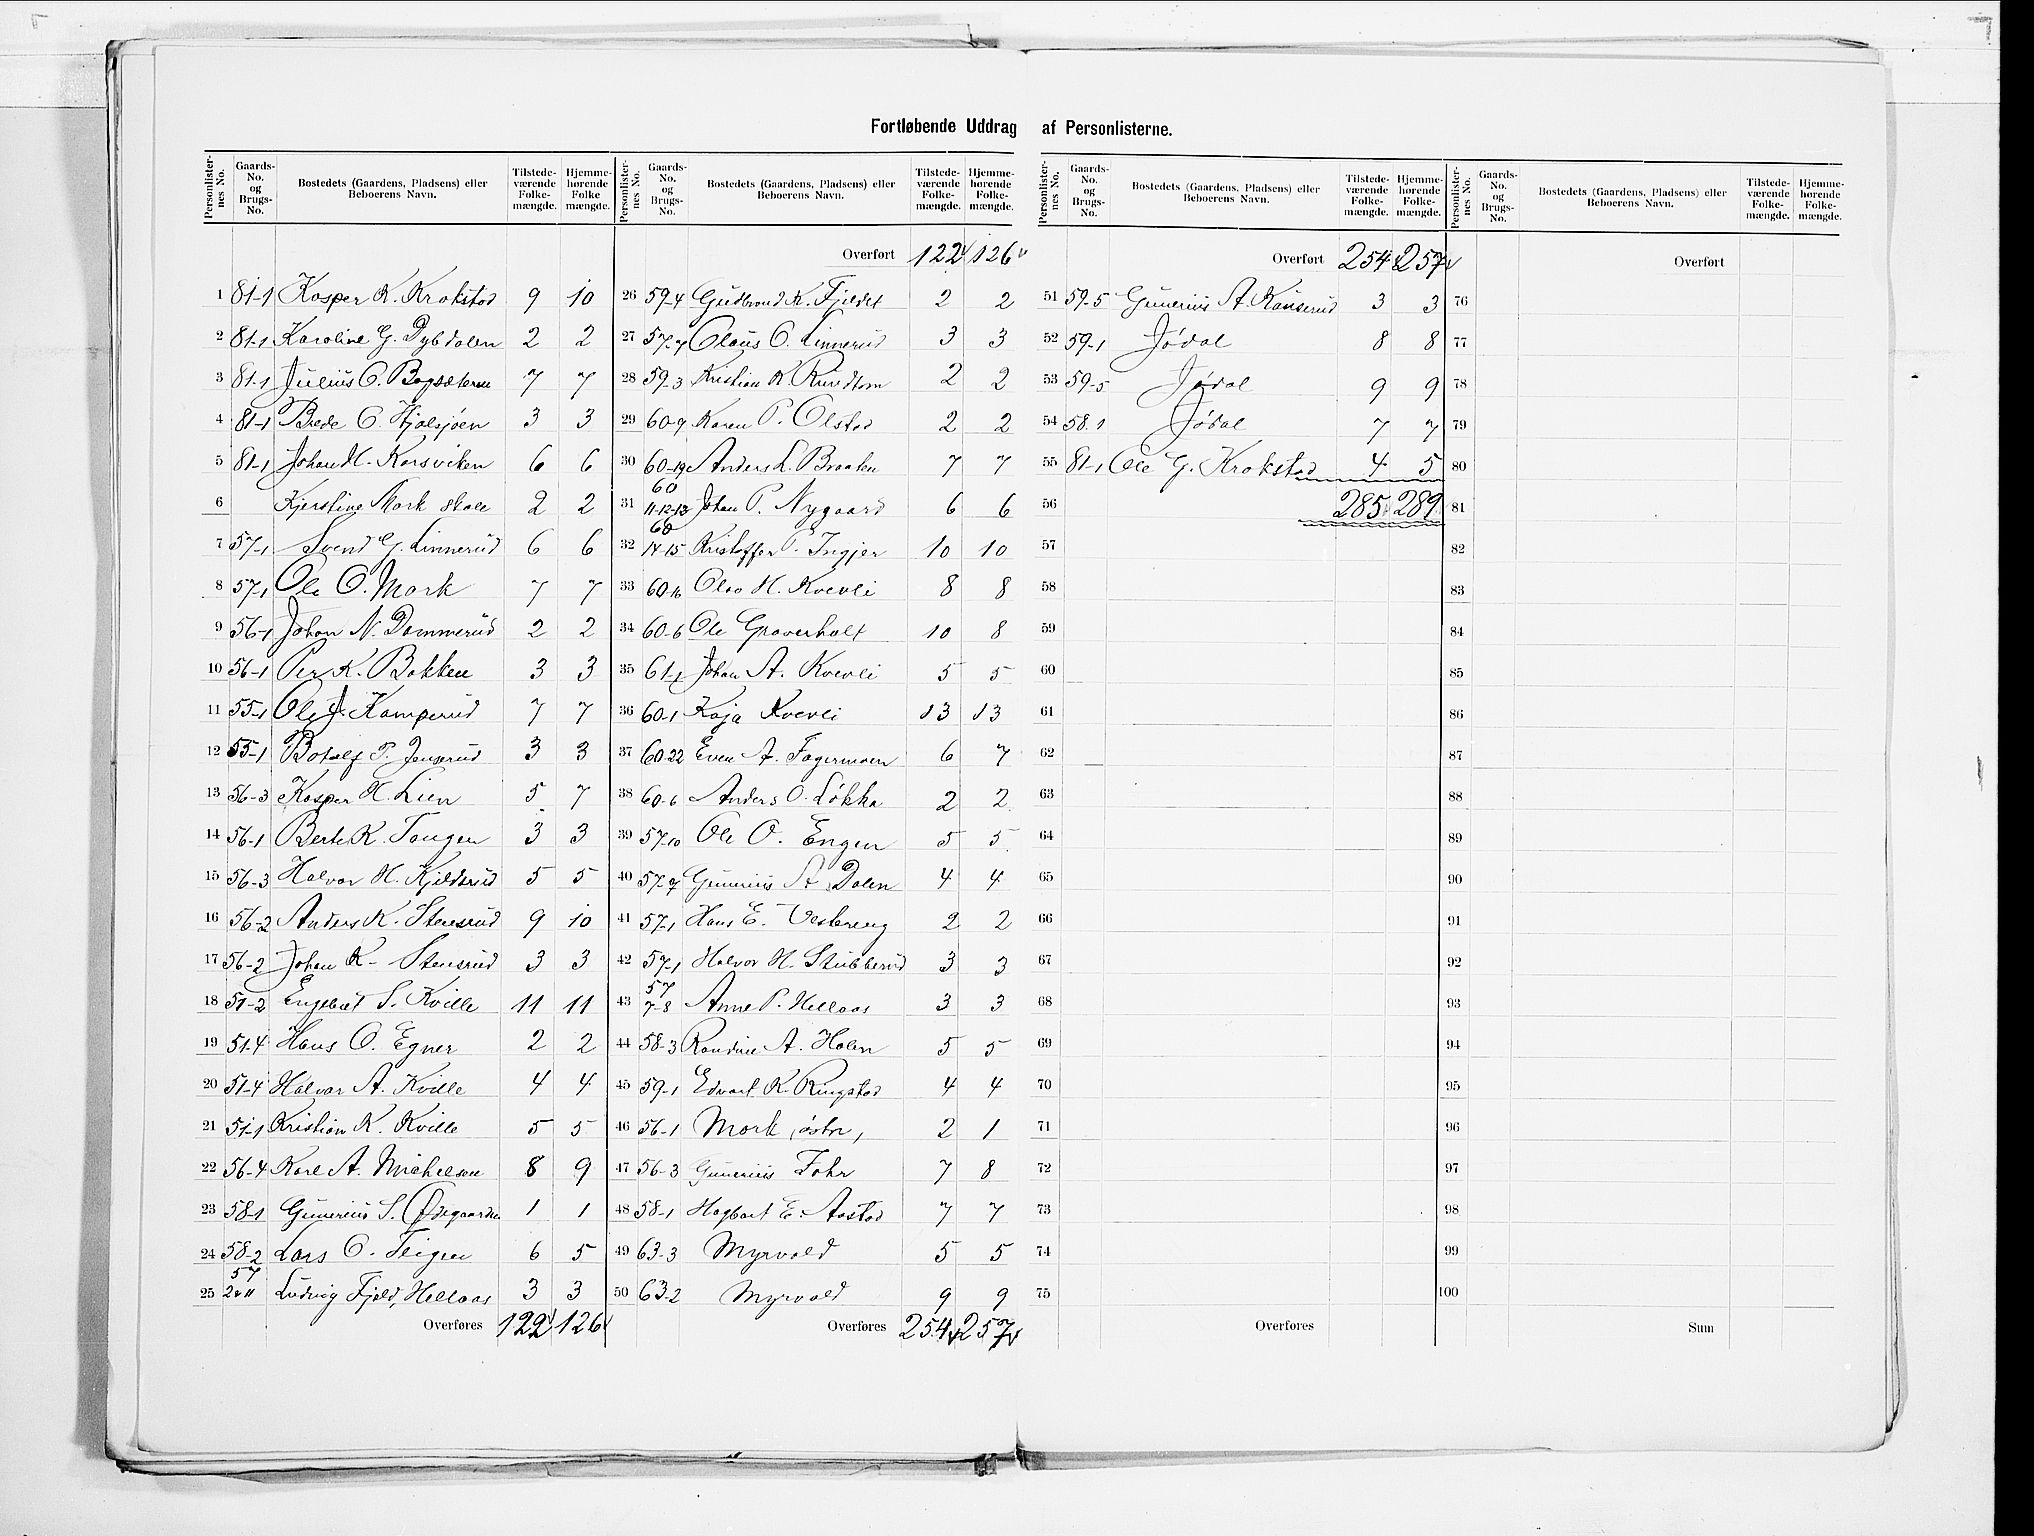 Fortløbende Uddrag af Personlisterne.
Personlisternes No. Gaards-No. og Brugs-No. Bostedets (Gaardens, Pladsens) eller Beboerens Navn. Tilstedeværende Folkemængde. Hjemmehørende Folkemængde.
1 81-1 Kasper K. Krokstad 9 10
2 81-1 Karoline G. Dybdalen 2 2
3 81-1 Julius O. Bagsæteren 7 7
4 81-1 Brede O. Hjalsjøen 3 3
5 81-1 Johan H. Korsviken 6 6
6 Kjerstine Mork skole 2 2
7 57-1 Svend G. Linnerud 6 6
8 57-1 Ole O. Mork 7 7
9 56-1 Johan N. Dammerud 2 2
10 56-1 Per K. Bakken 3 3
11 55-1 Ole J. Kamperud 7 7
12 55-1 Botolf P. Jenserud 3 3
13 56-3 Kasper H. Lien 5 7
14 56-1 Berte K. Tangen 3 3
15 56-3 Halvor H. Kjeldsrud 5 5
16 56-2 Anders K. Stensrud 9 10
17 56-2 Johan K. Stensrud 3 3
18 51-2 Engebret S. Kville 11 11
19 51-4 Hans O. Egner 2 2
20 51-4 Halvor A. Kville 4 4
21 51-1 Kristian K. Kville 5 5
22 56-4 Karl A. Michelsen 8 9
23 58-1 Gunerius S. Ødegaarden 1 1
24 58-2 Lars O. Teigen 6 5
25 57 2 & 11 Ludvig Fjeld, Hellaas 3 3
Overføres 122 126
Personlisternes No. Gaards-No. og Brugs-No. Bostedets (Gaardens, Pladsens) eller Beboerens Navn. Tilstedeværende Folkemængde. Hjemmehørende Folkemængde.
Overført 122 126
26 59-4 Gudbrand K. Fjeldet 2 2
27 57-7 Olaus O. Linnerud 3 3
28 59-3 Kristian K. 2 2
29 60-9 Karen P. Olstad 2 2
30 60-19 Anders L. Braaten 7 7
31 60 11-12-13 Johan P. Nygaard 6 6
32 60 14-15 Kristoffer P. Ingjer 10 10
33 60-16 Olav H. Kvevli 8 8
34 60-6 Ole Graverholt 10 8
35 61-1 Johan A. Kvevli 5 5
36 60-1 Kaja Kvevli 13 13
37 60-22 Even A. Fagermoen 6 7
38 60-6 Anders O. Løkka 2 2
39 57-10 Ole O. Engen 5 5
40 57-7 Gunerius A. Dalen 4 4
41 57-1 Hans E. Vestereng 2 2
42 57-1 Halvor H. Stubberud 3 3
43 57 7-8 Anne P. Hellaas 3 3
44 58-3 Randine A. Holen 5 5
45 59-1 Edvart K. Ringstad 4 4
46 56-1 Mork, østre, 2 1
47 56-3 Gunerius Tohr 7 8
48 58-1 Hagbart E. Aastad 7 7
49 63-3 Myrvold 5 5
50 63-2 Myrvold 9 9
Overføres 254 257
Personlisternes No. Gaards-No. og Brugs-No. Bostedets (Gaardens, Pladsens) eller Beboerens Navn. Tilstedeværende Folkemængde. Hjemmehørende Folkemængde.
Overført 254 257
51 59-5 Gunerius A. Kanserud 3 3
52 59-1 Jødal 8 8
53 59-5 Jødal 9 9
54 58.1 Jødal 7 7
55 81-1 Ole G. Krokstad 4 5
56 285 289
57
58
59
60
61
62
63
64
65
66
67
68
69
70
71
72
73
74
75
Overføres
Personlisternes No. Gaards-No. og Brugs-No. Bostedets (Gaardens, Pladsens) eller Beboerens Navn. Tilstedeværende Folkemængde. Hjemmehørende Folkemængde.
Overført
76
77
78
79
80
81
82
83
84
85
86
87
88
89
90
91
92
93
94
95
96
97
98
99
100
Sum